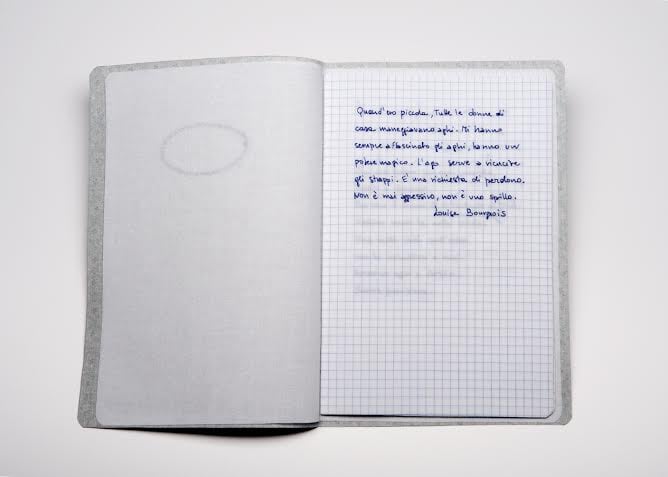 Quand'ero piccola, tutte le donne di
casa maneggiavano aghi. Mi hanno
sempre affascinato gli aghi, hanno un
potere magico. L'ago serve a ricucire
gli strappi. È una richiesta di perdono.
Non è mai aggressivo, non è uno spillo.
Louise Bourgeois